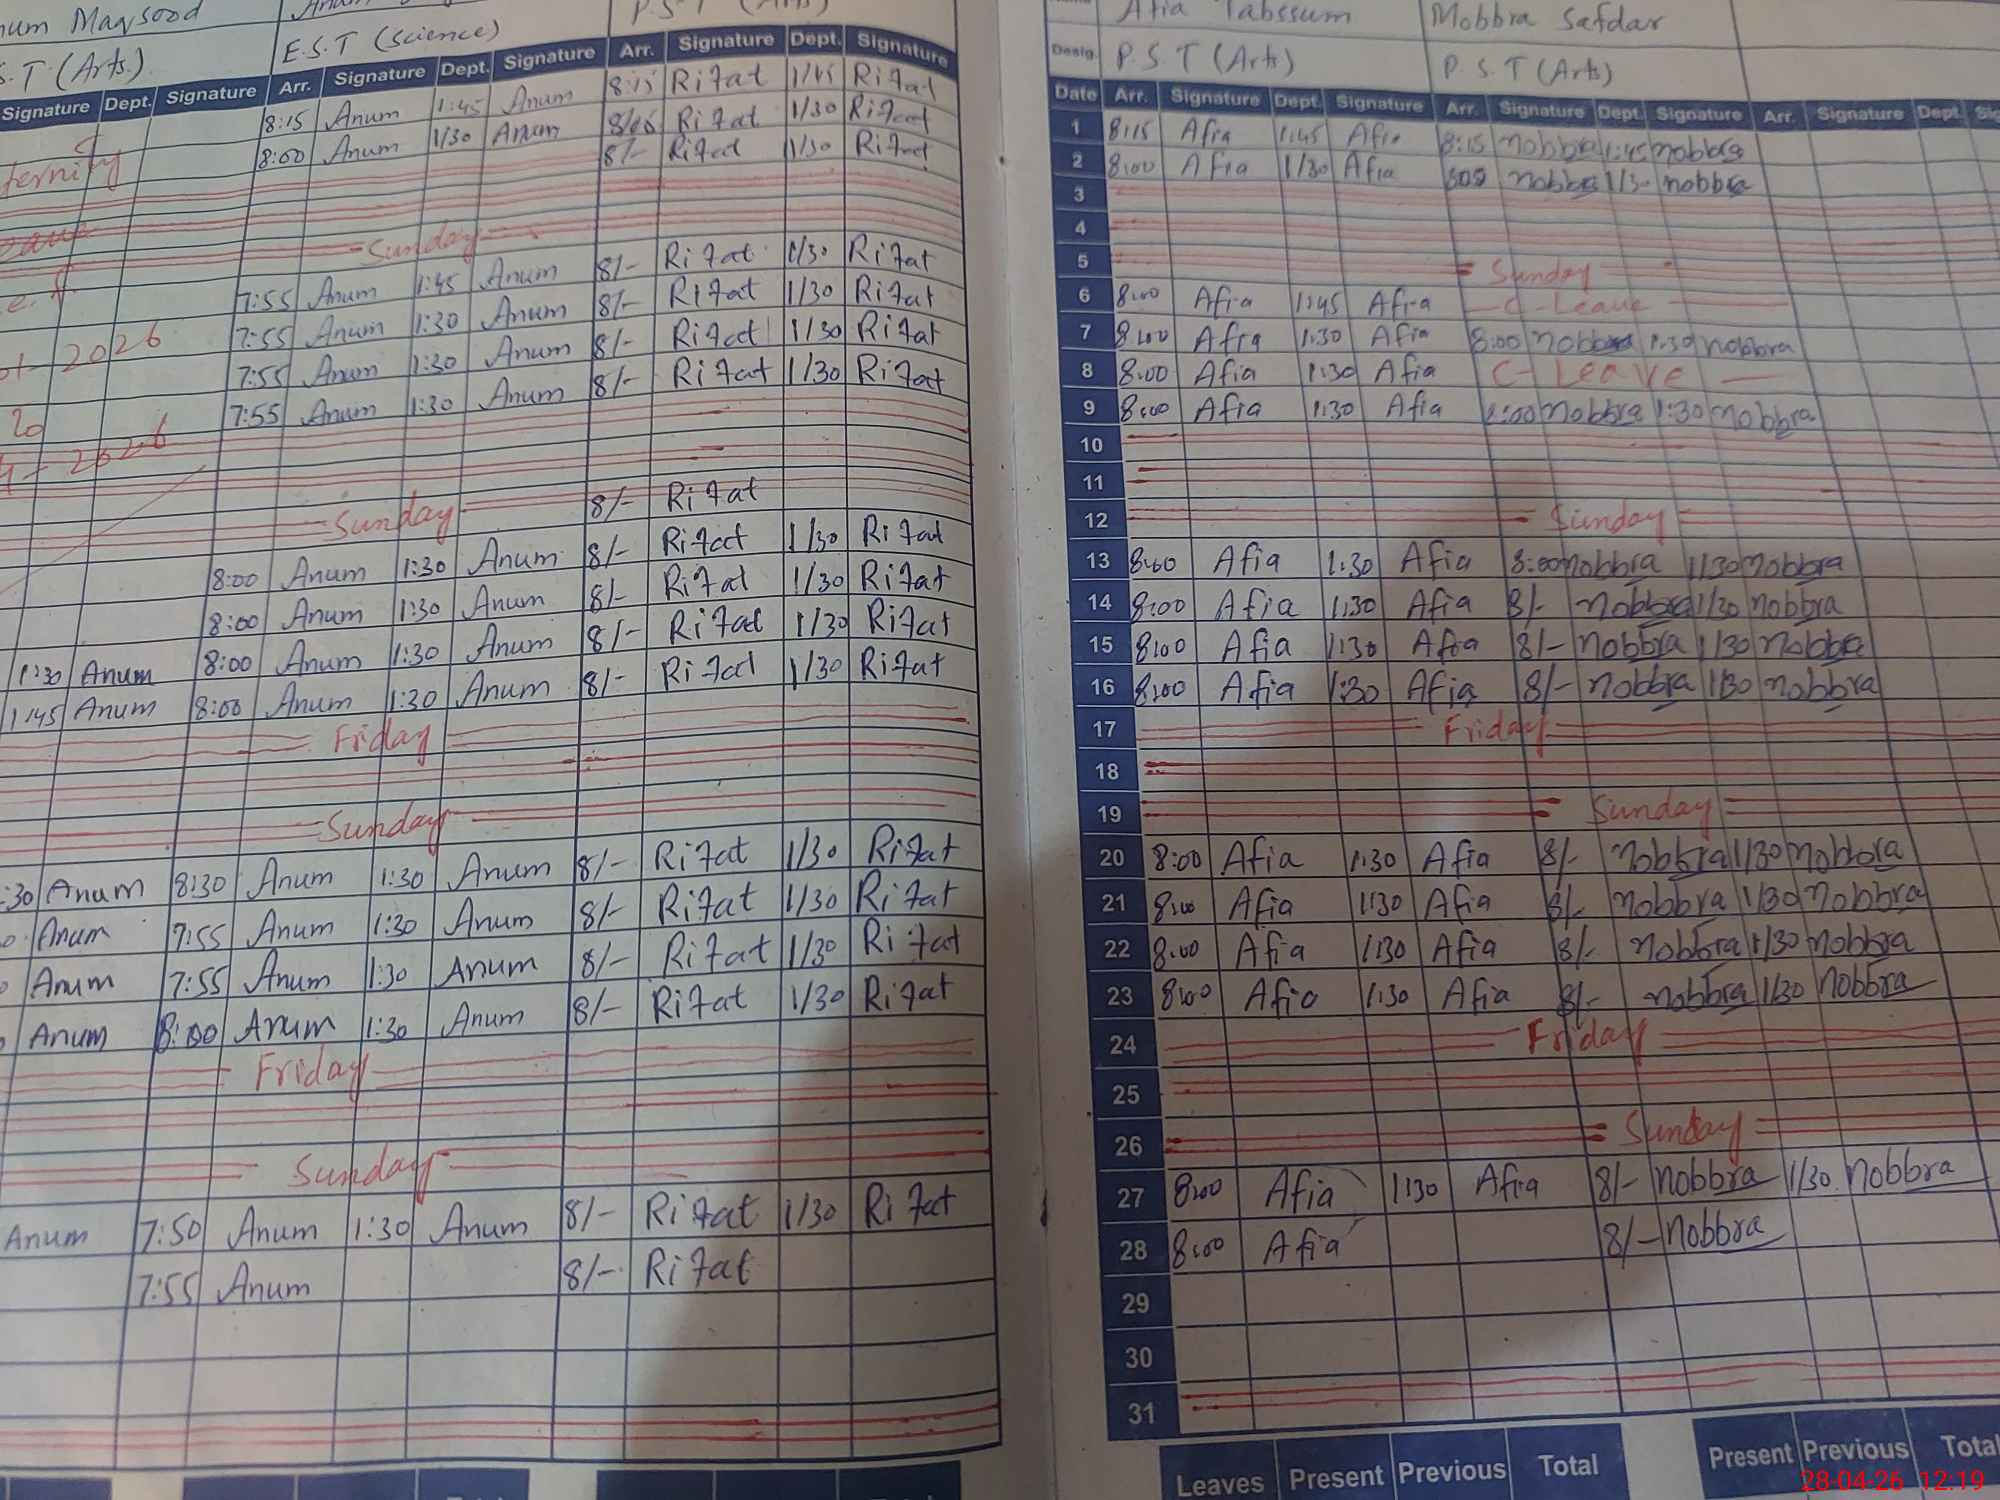 num Maqsood
S.T (Arts.)
E.S.T (Science)
P.S.T (Arts)
Signature Dept. Signature Arr. Signature Dept. Signature Arr. Signature Dept. Signature
8:15 Anum 1:45 Anum 8:15 Rifat 1/45 Rifat
8:00 Anum 1/30 Anum Rifat 1/30 Rifat
8/- Rifat 1/30 Rifat
Sunday
7:55 Anum 1:45 Anum 8/- Rifat 1/30 Rifat
7:55 Anum 1:30 Anum 8/- Rifat 1/30 Rifat
2026 7:55 Anum 1:30 Anum 8/- Rifat 1/30 Rifat
7:55 Anum 1:30 Anum 8/- Rifat 1/30 Rifat
2026
Sunday 8/- Rifat
8:00 Anum 1:30 Anum 8/- Rifat 1/30 Rifat
8:00 Anum 1:30 Anum 8/- Rifat 1/30 Rifat
1:30 Anum 8:00 Anum 1:30 Anum 8/- Rifat 1/30 Rifat
1:45 Anum 8:00 Anum 1:30 Anum 8/- Rifat 1/30 Rifat
Friday
Sunday
:30 Anum 8:30 Anum 1:30 Anum 8/- Rifat 1/30 Rifat
Anum 7:55 Anum 1:30 Anum 8/- Rifat 1/30 Rifat
Anum 7:55 Anum 1:30 Anum 8/- Rifat 1/30 Rifat
Anum 8:00 Anum 1:30 Anum 8/- Rifat 1/30 Rifat
Friday
Sunday
Anum 7:50 Anum 1:30 Anum 8/- Rifat 1/30 Rifat
7:55 Anum 8/- Rifat
Afia Tabssum Mobbra Safdar
Desig. P.S.T (Arts) P.S.T (Arts)
Date Arr. Signature Dept. Signature Arr. Signature Dept. Signature Arr. Signature Dept. Sig
1 8:15 Afia 1:45 Afia 8:15 Mobbra 1:45 Mobbra
2 8:00 Afia 1/30 Afia Mobbra Mobbra
3
4
5 Sunday
6 8:00 Afia 1:45 Afia C-Leave
7 8:00 Afia 1:30 Afia 8:00 Mobbra 1:30 Mobbra
8 8:00 Afia 1:30 Afia C-Leave
9 8:00 Afia 1:30 Afia 8:00 Mobbra 1:30 Mobbra
10
11
12 Sunday
13 8:00 Afia 1:30 Afia 8:00 Mobbra 1/30 Mobbra
14 8:00 Afia 1:30 Afia 8/- Mobbra 1/30 Mobbra
15 8:00 Afia 1:30 Afia 8/- Mobbra 1/30 Mobbra
16 8:00 Afia 1:30 Afia 8/- Mobbra 1/30 Mobbra
17 Friday
18
19 Sunday
20 8:00 Afia 1:30 Afia 8/- Mobbra 1/30 Mobbra
21 8:00 Afia 1:30 Afia 8/- Mobbra 1/30 Mobbra
22 8:00 Afia 1:30 Afia 8/- Mobbra 1/30 Mobbra
23 8:00 Afia 1:30 Afia 8/- Mobbra 1/30 Mobbra
24 Friday
25
26 Sunday
27 8:00 Afia 1:30 Afia 8/- Mobbra 1/30 Mobbra
28 8:00 Afia 8/- Mobbra
29
30
31
Leaves Present Previous Total Present Previous Total
28-04-26 12:19